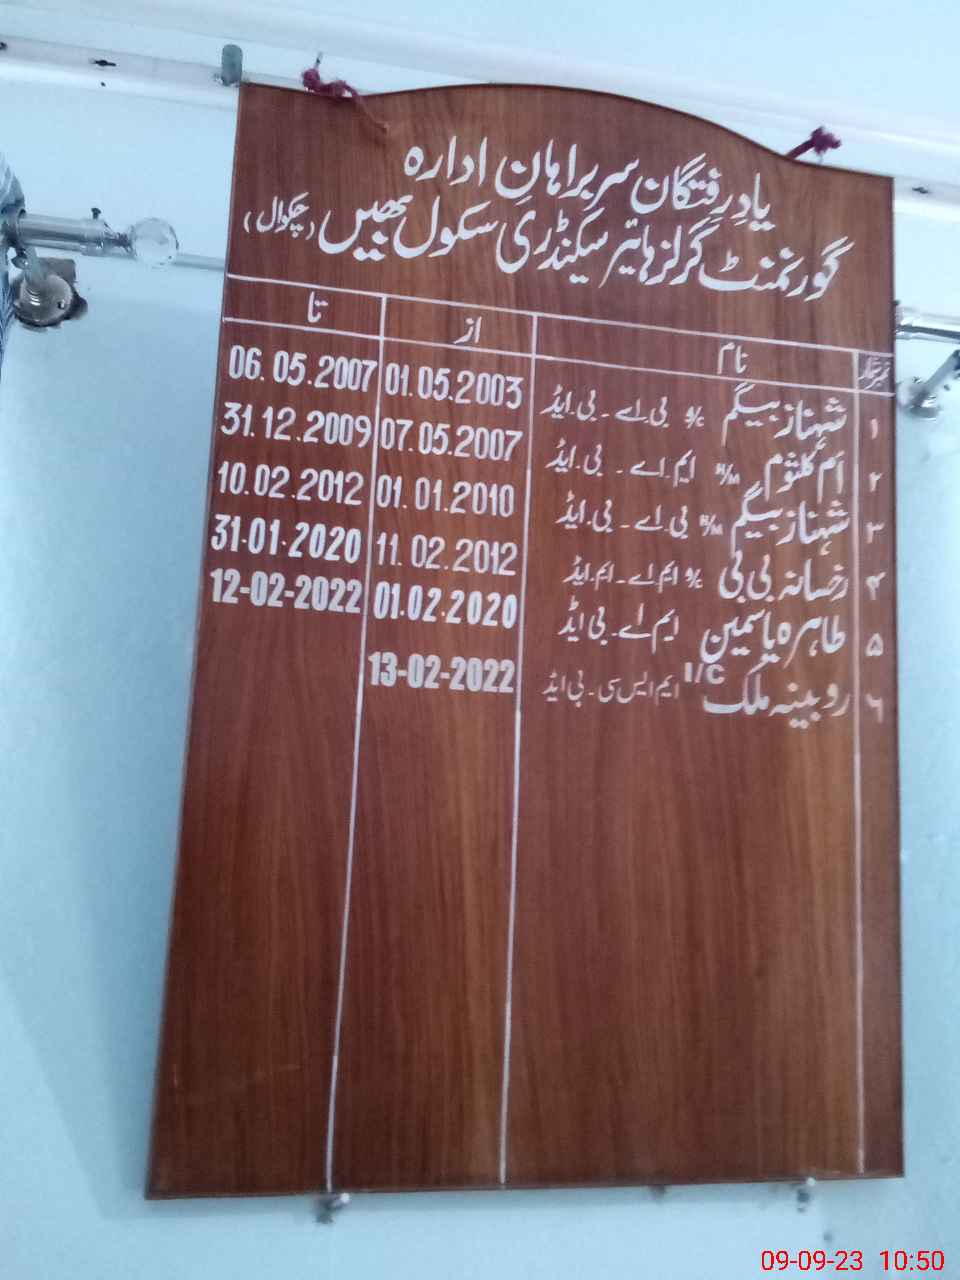 یادِ رفتگان سربراہانِ ادارہ
گورنمنٹ گرلز ہائیر سیکنڈری سکول بھیں (چکوال)
نمبر شمار نام از تا
۱ شہناز بیگم I/C بی۔اے۔بی۔ایڈ 01.05.2003 06.05.2007
۲ اُم کلثوم H/M ایم۔اے۔بی۔ایڈ 07.05.2007 31.12.2009
۳ شہناز بیگم H/M بی۔اے۔بی۔ایڈ 01.01.2010 10.02.2012
۴ رخسانہ بی بی I/C ایم۔اے۔ایم۔ایڈ 11.02.2012 31.01.2020
۵ طاہرہ یاسمین ایم۔اے۔بی ایڈ 01.02.2020 12-02-2022
۶ روبینہ ملک I/C ایم ایس سی۔بی ایڈ 13-02-2022
09-09-23 10:50